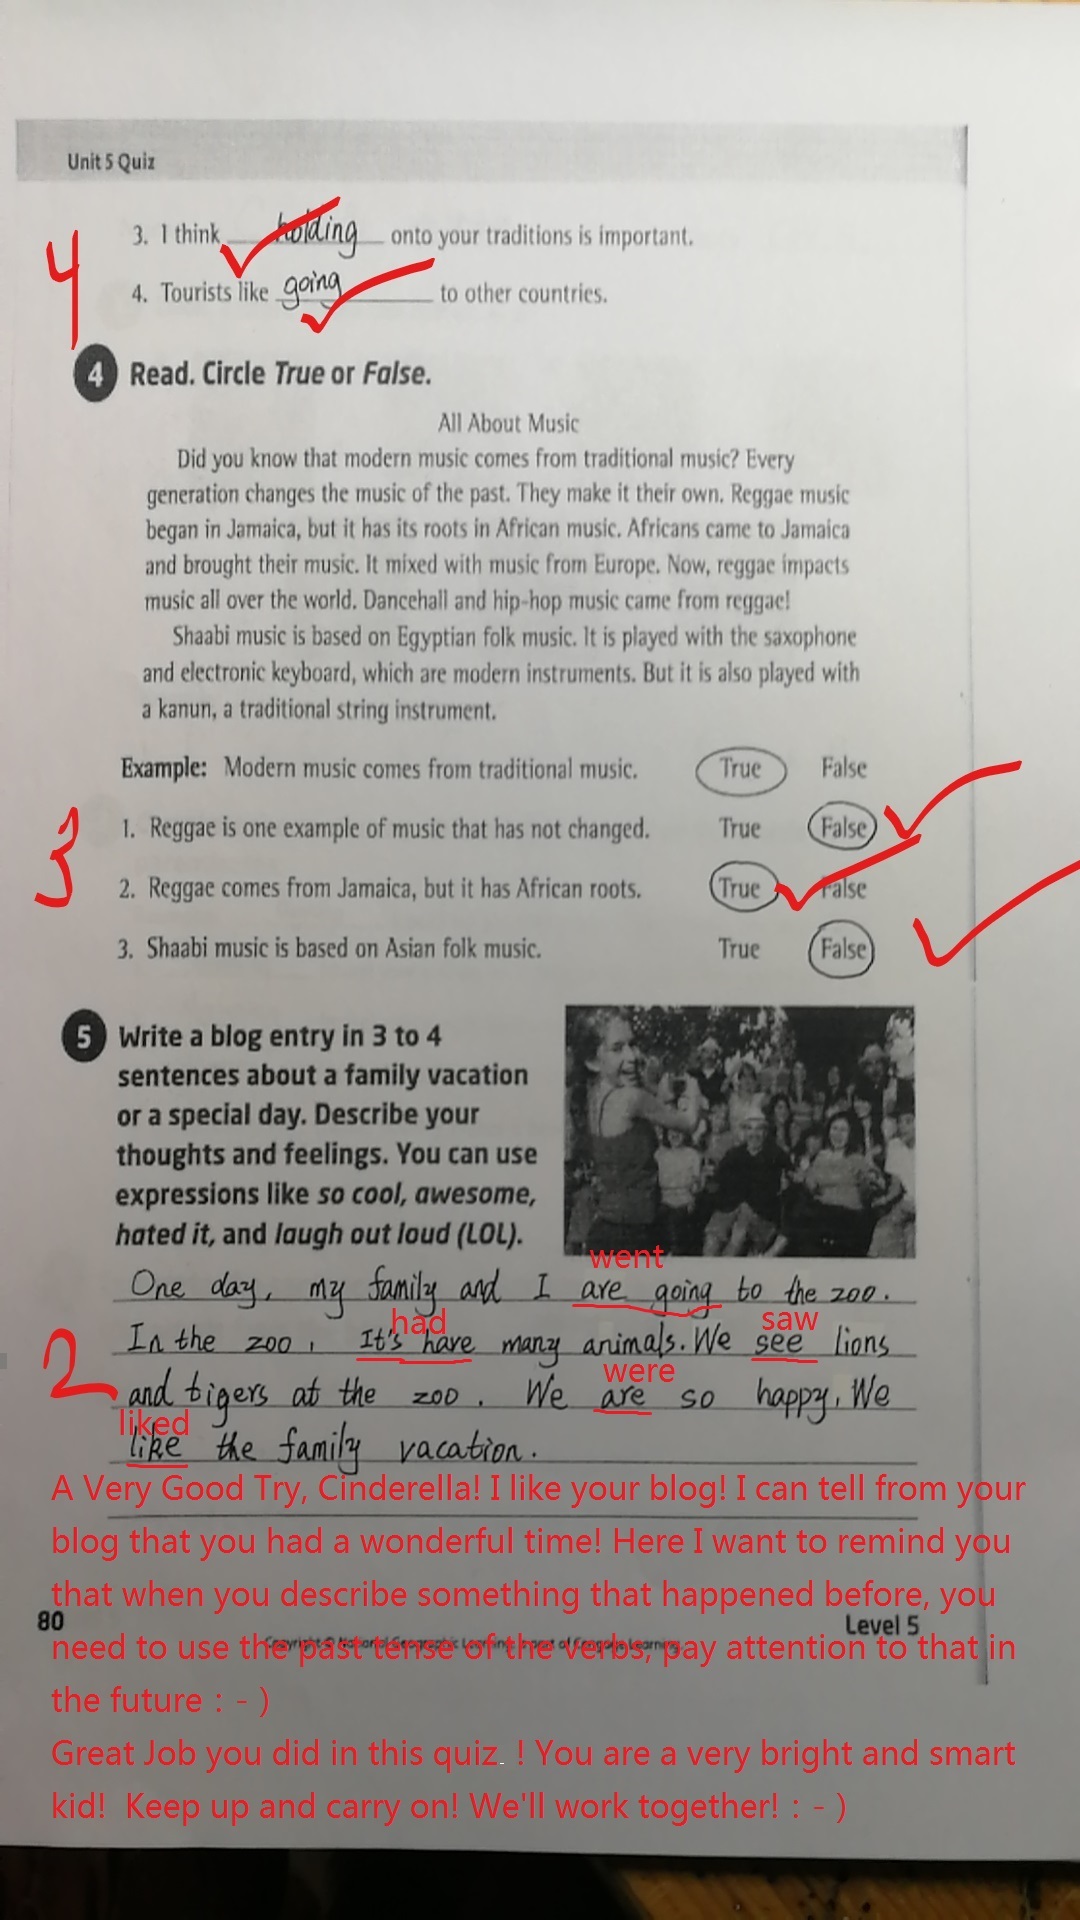 Unit 5 Quiz
3. I think holding onto your traditions is important.
4
4. Tourists like going to other countries.
4 Read. Circle True or False.
All About Music
Did you know that modern music comes from traditional music? Every
generation changes the music of the past. They make it their own. Reggae music
began in Jamaica, but it has its roots in African music. Africans came to Jamaica
and brought their music. It mixed with music from Europe. Now, reggae impacts
music all over the world. Dancehall and hip-hop music came from reggae!
Shaabi music is based on Egyptian folk music. It is played with the saxophone
and electronic keyboard, which are modern instruments. But it is also played with
a kanun, a traditional string instrument.
Example: Modern music comes from traditional music. True False
1. Reggae is one example of music that has not changed. True False
3
2. Reggae comes from Jamaica, but it has African roots. True False
3. Shaabi music is based on Asian folk music. True False
5 Write a blog entry in 3 to 4
sentences about a family vacation
or a special day. Describe your
thoughts and feelings. You can use
expressions like so cool, awesome,
hated it, and laugh out loud (LOL).
went
One day, my family and I are going to the zoo.
had saw
In the zoo, It's have many animals. We see lions
2
were
and tigers at the zoo. We are so happy. We
liked
like the family vacation.
A Very Good Try, Cinderella! I like your blog! I can tell from your
blog that you had a wonderful time! Here I want to remind you
that when you describe something that happened before, you
80 Level 5
Copyright © National Geographic Learning, a part of Cengage Learning.
need to use the past tense of the verbs, pay attention to that in
the future : - )
Great Job you did in this quiz. ! You are a very bright and smart
kid! Keep up and carry on! We'll work together! : - )